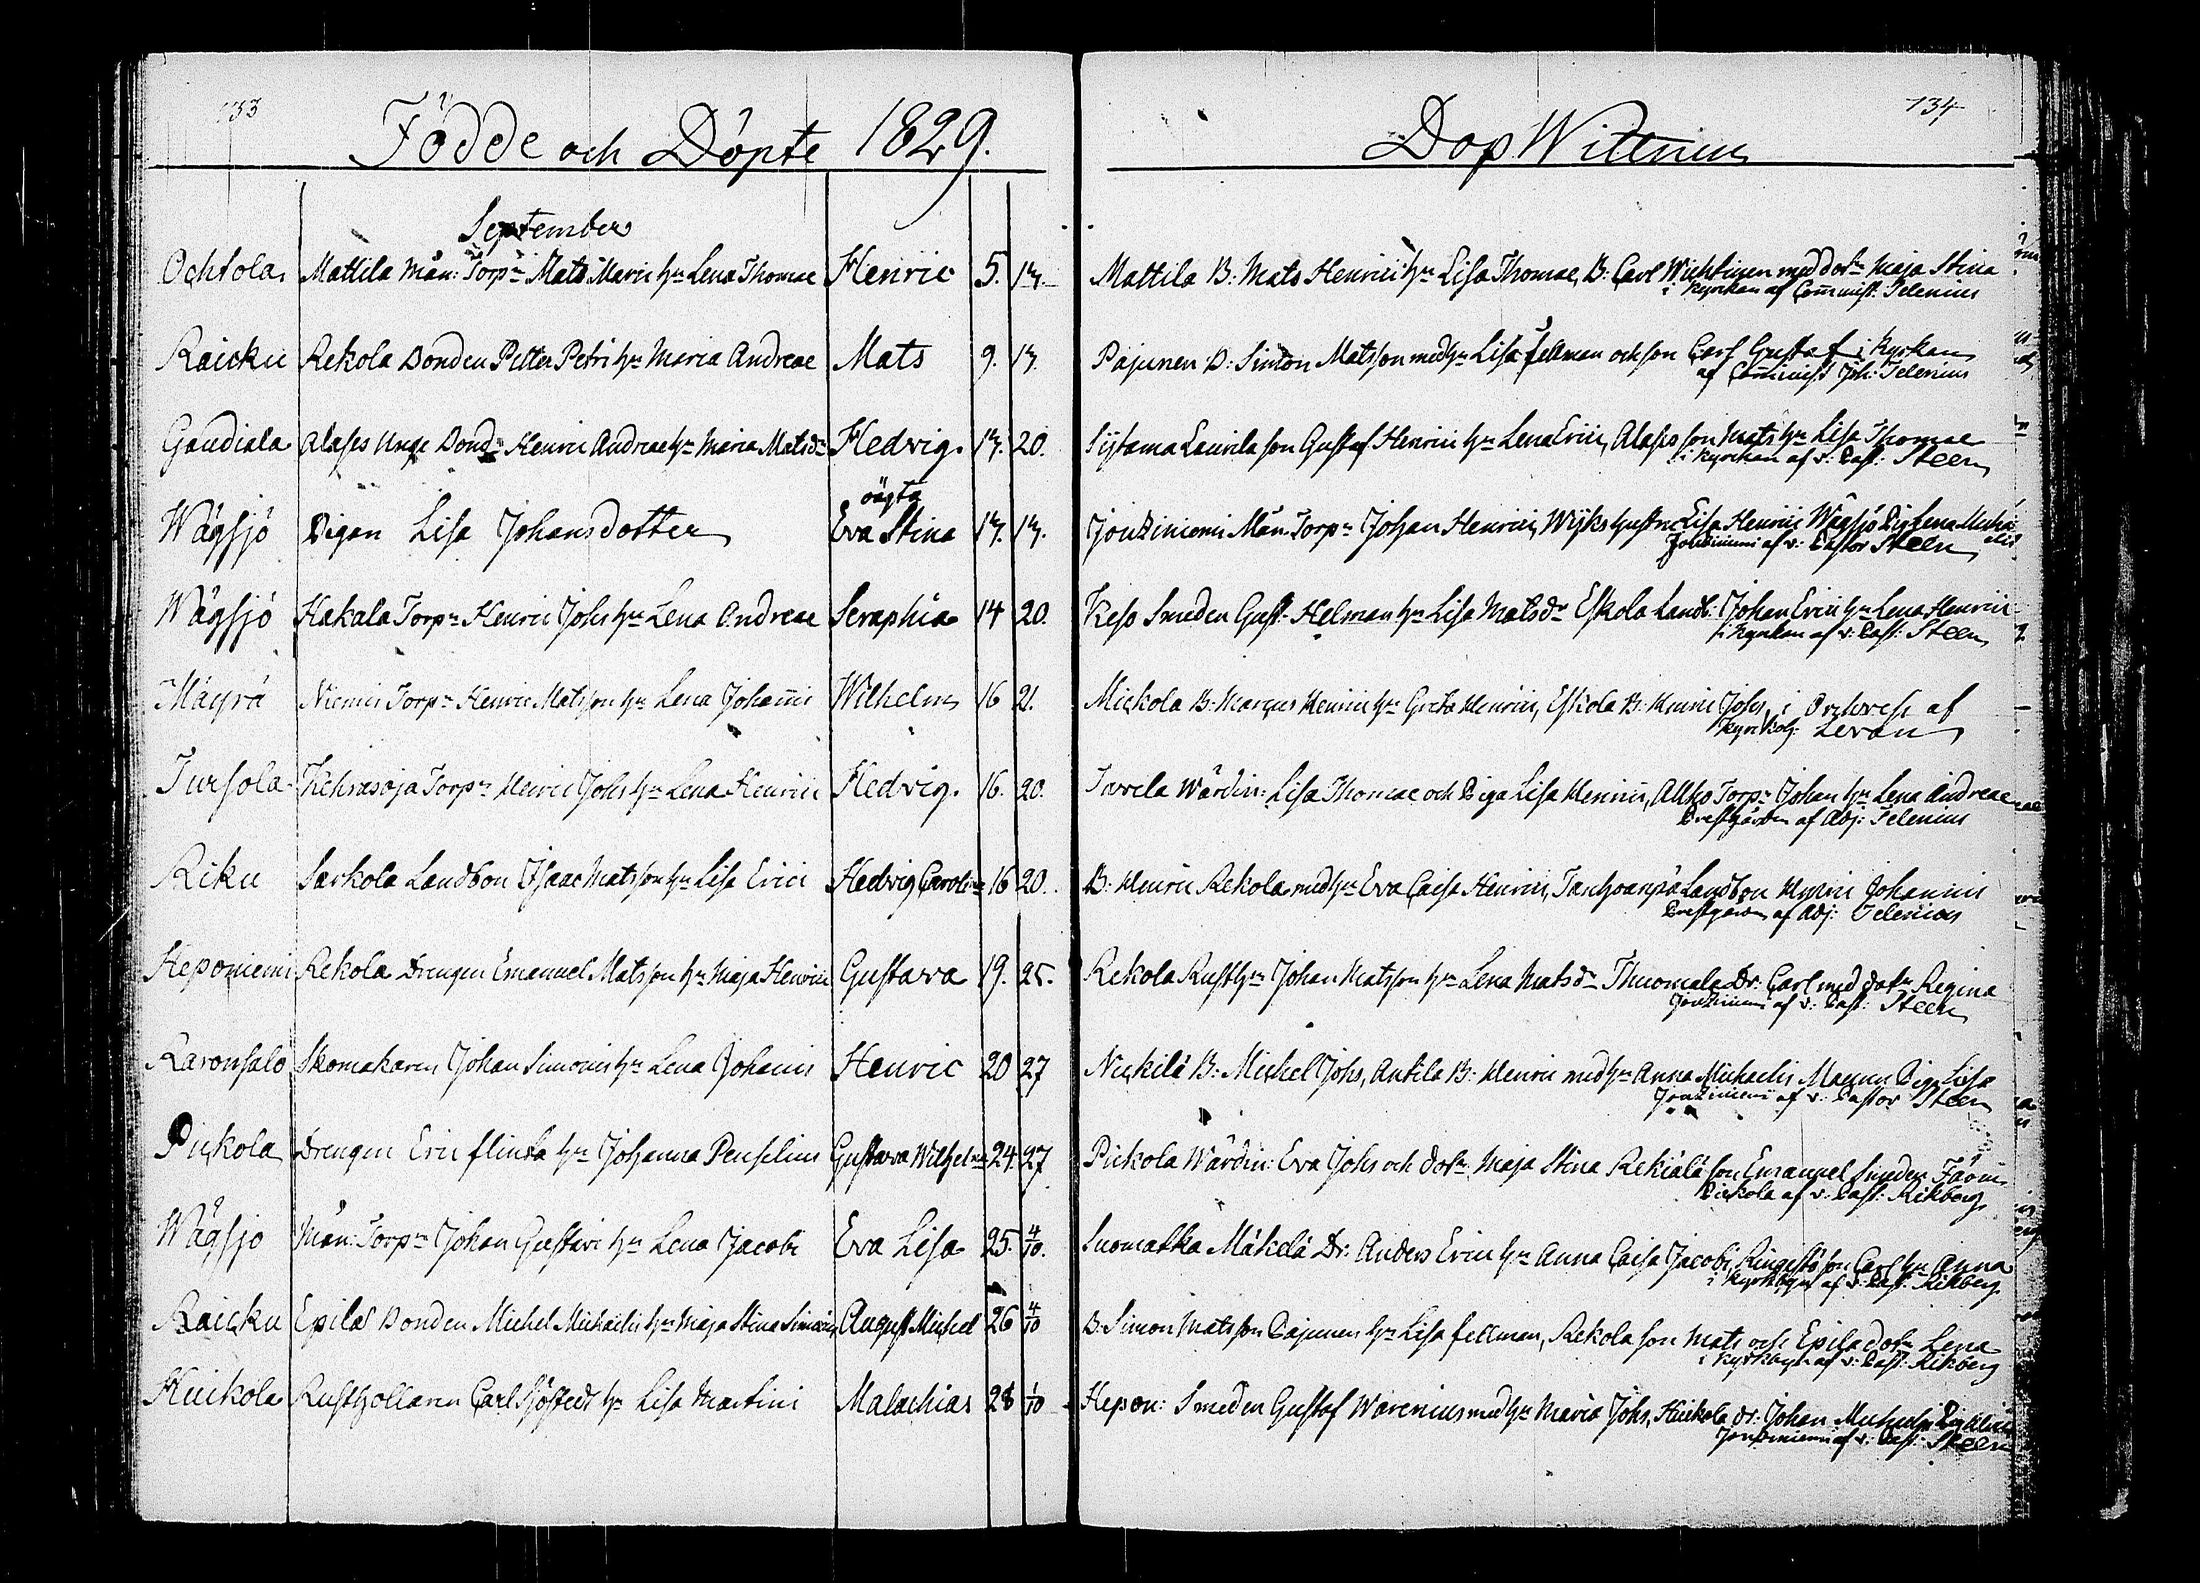 133
Födde och Döpte 1829.
September
Ochtola Mattila Mån: Torp:n Mats Marci h:u Lena Thomae Henric 5. 13.
Raicku Rekola Bonden Petter Petri h:u Maria Andreae Mats 9. 13.
Gaudiala Alasjs Unge Bond:n Henric Andreae h:u Maria Matsd:r Hedvig. 13. 20.
oägta
Wågsjö Pigan Lisa Johansdotter Eva Stina 13. 13.
Wågsjö Hakala Torp:n Henric Johs h:u Lena Andreae Seraphia 14 20.
Mäyrä Niemis Torp:n Henric Matsson h:u Lena Johannis Wilhelm 16 21.
Tursola Kehrasoja Torp:n Henric Johs h:u Lena Henrici Hedvig. 16. 20.
Riku Sarkola Landbon Isaac Matsson h:u Lisa Erici Hedvig Carolina 16 20.
Heponiemi Rekola Drengen Emanuel Matsson h:u Maja Henrici Gustava 19. 25.
Karonsalo Skomakaren Johan Simonis h:u Lena Johannis Henric 20 27
Puckola Drengen Eric flinka h:u Johanna Penselius Gustava Wilhelmina 24 27
Wågsjö Mån: Torp:n Johan Gustavi h:u Lena Jacobi Eva Lisa 25. 4/10.
Raicku Epilä Bonden Michel Michaelis h:u Maja Stina Simonis August Michel 26 4/10
Huikola Rusthollaren Carl Sjöstedt h:u Lisa Martini Malachias 28 1/10
134
Dop Wittnen
Mattila B: Mats Henrici h:u Lisa Thomae, B: Carl Wichtinen med dot:r Maja Stina
i kyrkan af Comminist. Telenius
Pajunen B: Simon Matsson med h:u Lisa fellman och son Carl Gustaf i kyrkan
af Comminist Joh: Telenius
Sijtama Laurila son Gustaf Henrici h:u Lena Erici, Alasjs son Mats h:u Lisa Thomae
i kyrckan af v: Past: Steen
Jouziniemi Mån. Torp:n Johan Henrici, Wijks hustru Lisa Henrici Wågsjö Pig Lena Micha
elis
Jouziniemi af v: Pastor Steen
Keso Smeden Gust. Helman h:u Lisa Matsd:r Eskola Landb: Johan Erici h:u Lena Henrici
i kyrkan af v: Past: Steen
Mickola B: Marcus Henrici h:u Greta Henrici, Eskola B: Henric Johs, i af
Kyrkoh: Levan
Tavela Wärdin: Lisa Thomae och Piga Lisa Henrici, Allho Torp:r Johan h:u Lena Andreae
Prestgården af Adj: Telenius
B: Henric Rekola med h:u Eva Caisa Henrici, Tanhuanpä Landbon Henric Johannis
Prestgården af Adj: Telenius
Rekola Rusth:n Johan Matsson h:u Lena Matsd:r Thuomala Dr: Carl med dot:r Regina
Jouziniemi af v: Past: Steen
Nickilä B: Michel Johs, Antila B: Henric med h:u Anna Michaelis Maunu Pig Lisa
Jouziniemi af v: Pastor Steen
Puckola Wärdin: Eva Johs och dot:r Maja Stina Rekiälä son Emanuel Smeden
Puckola af v: Past: Rikberg
Suomatka Mäkelä Dr: Anders Erici h:u Anna Caisa Jacobi, Ringstö son Carl h:u Anna
i kyrkbyn af v: Past: Rikberg
B: Simon Matsson Pajunen h:u Lisa fellman, Rekola son Mats och Epilä dot:r Lena
i kyrkbyn af v: Past: Rikberg
Hepon: Smeden Gustaf Warenius med h:u Maria Johs, Huikola Dr: Johan Michaelis Pig
Jouziniemi af v: Past: Steen